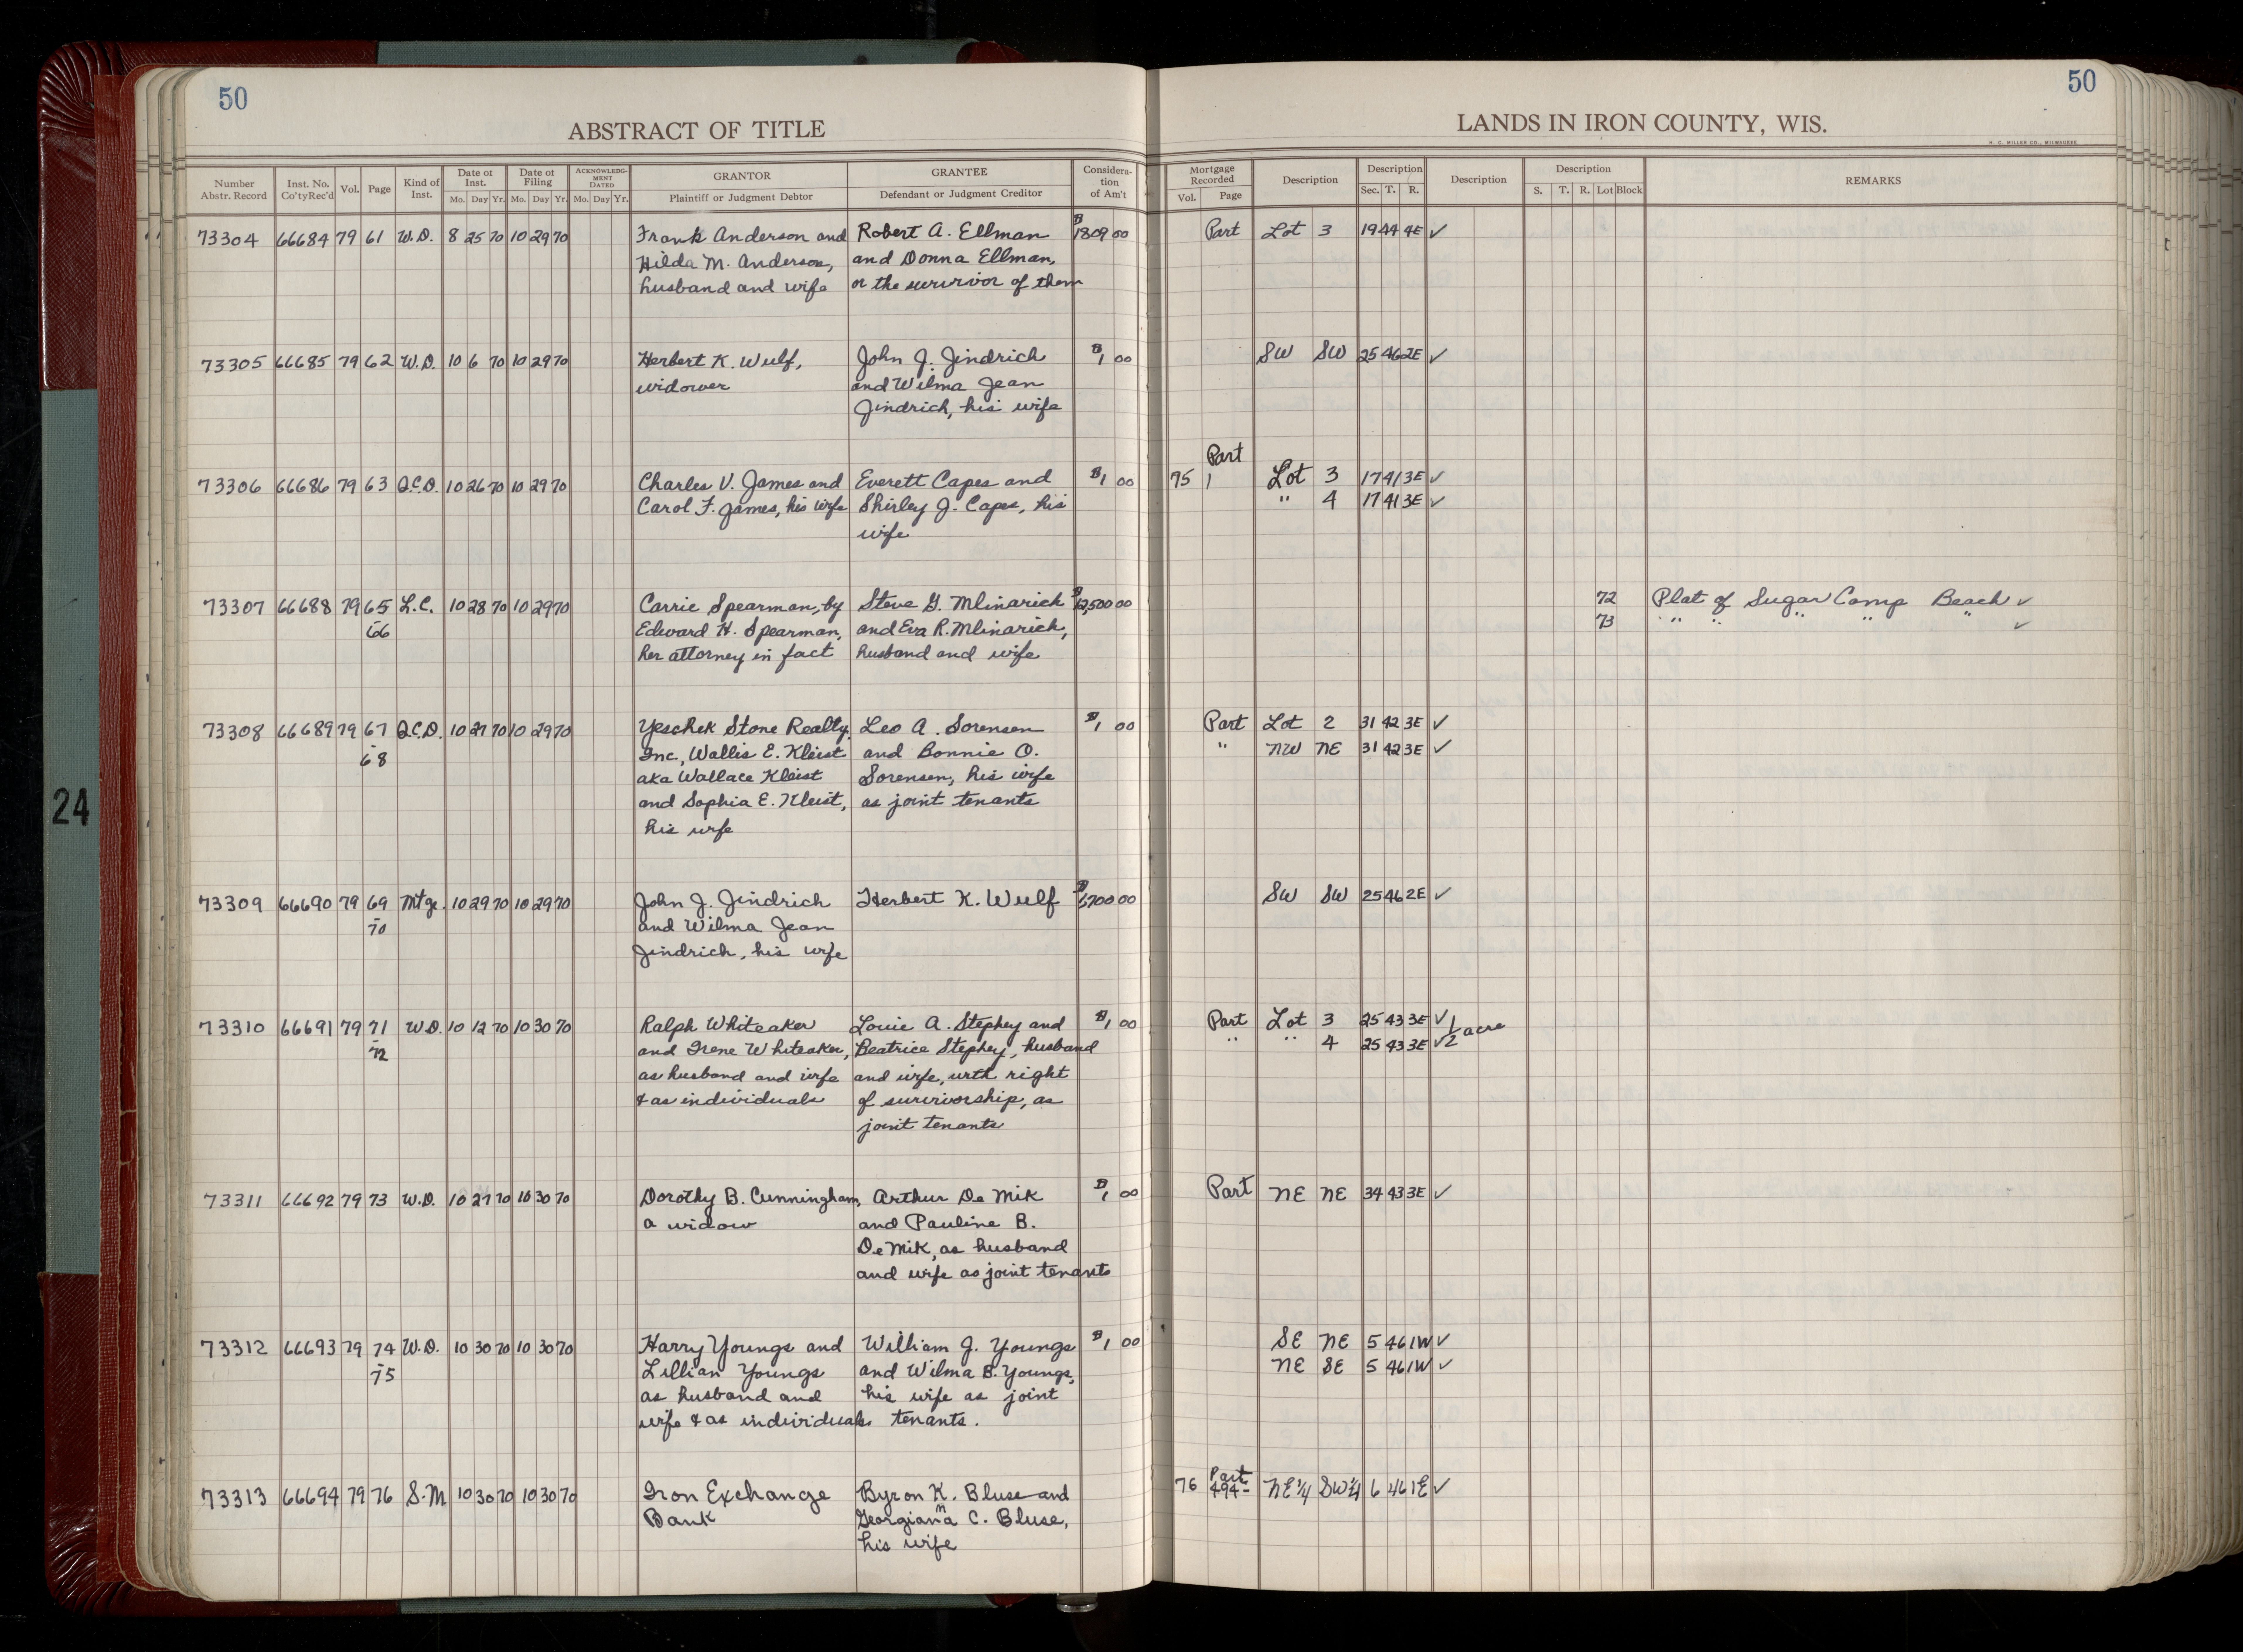 50
50
ABSTRACT OF TITLE
LANDS IN IRON COUNTY, WIS.
H. C. MILLER CO., MILWAUKEE
Number Abstr. Record
Inst. No. Co'tyRec'd
Vol.
Page
Kind of Inst.
Date of Inst.
Mo. Day Yr.
Date of Filing
Mo. Day Yr.
ACKNOWLEDG-MENT DATED
Mo. Day Yr.
GRANTOR
Plaintiff or Judgment Debtor
GRANTEE
Defendant or Judgment Creditor
Considera-tion of Am't
Mortgage Recorded
Vol. Page
Description
Description
Sec. T. R.
Description
Description
S. T. R. Lot Block
REMARKS
73304 66684 79 61 W.D. 8 25 70 10 29 70 Frank Anderson and Robert A. Ellman $1809 00 Part Lot 3 19 44 4E ✓
Hilda M. Anderson, and Donna Ellman,
husband and wife or the survivor of them
73305 66685 79 62 W.D. 10 6 70 10 29 70 Herbert K. Wulf, John J. Jindrich $1 00 SW SW 25 46 2E ✓
widower and Wilma Jean
Jindrich, his wife
Part
73306 66686 79 63 Q.C.D. 10 26 70 10 29 70 Charles V. James and Everett Capes and $1 00 75 1 Lot 3 17 41 3E ✓
Carol F. James, his wife Shirley J. Capes, his " 4 17 41 3E ✓
wife
73307 66688 79 65 L.C. 10 28 70 10 29 70 Carrie Spearman, by Steve G. Mlinarich $12,500 00 72 Plat of Sugar Camp Beach ✓
-66 Edward H. Spearman, and Eva R. Mlinarich, 73 " " " " " ✓
her attorney in fact husband and wife
73308 66689 79 67 Q.C.D. 10 27 70 10 29 70 Yeschek Stone Realty, Leo A. Sorensen $1 00 Part Lot 2 31 42 3E ✓
-68 Inc., Wallis E. Kleist and Bonnie O. " NW NE 31 42 3E ✓
aka Wallace Kleist Sorensen, his wife
and Sophia E. Kleist, as joint tenants
his wife
73309 66690 79 69 Mtge. 10 29 70 10 29 70 John J. Jindrich Herbert K. Wulf 00 SW SW 25 46 2E ✓
-70 and Wilma Jean
Jindrich, his wife
73310 66691 79 71 W.D. 10 12 70 10 30 70 Ralph Whiteaker Louie A. Stephey and $1 00 Part Lot 3 25 43 3E ✓ 1/2 acre
-72 and Irene Whiteaker, Beatrice Stephey, husband " " 4 25 43 3E ✓
as husband and wife and wife, with right
& as individuals of survivorship, as
joint tenants
73311 66692 79 73 W.D. 10 27 70 10 30 70 Dorothy B. Cunningham, Arthur De Mik $1 00 Part NE NE 34 43 3E ✓
a widow and Pauline B.
De Mik, as husband
and wife as joint tenants
73312 66693 79 74 W.D. 10 30 70 10 30 70 Harry Youngs and William J. Youngs $1 00 SE NE 5 46 1W ✓
-75 Lillian Youngs and Wilma B. Youngs, NE SE 5 46 1W ✓
as husband and his wife as joint
wife & as individuals tenants.
Part
73313 66694 79 76 S.M 10 30 70 10 30 70 Iron Exchange Byron K. Bluse and 76 494- NE¼ SW¼ 6 46 1E ✓
Bank Georgianna C. Bluse,
his wife
24